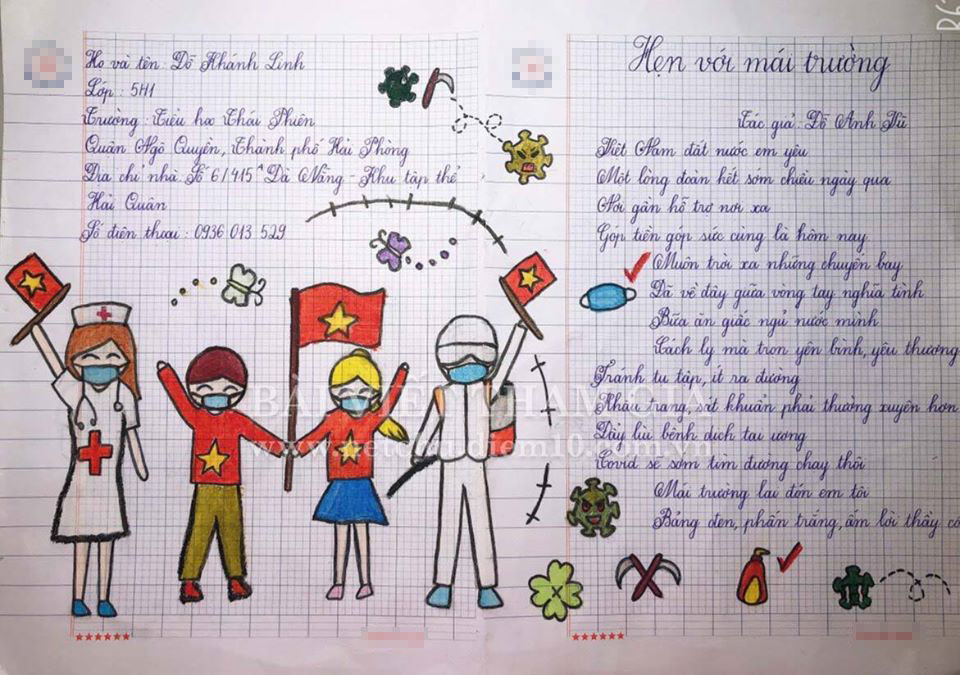 Họ và tên: Đỗ Khánh Linh
Lớp: 5H1
Trường: Tiểu học Thái Phiên
Quận Ngô Quyền, Thành phố Hải Phòng
Địa chỉ nhà Số 6/415^A Đà Nẵng - Khu tập thể
Hải Quân
Số điện thoại: 0936 013 529
Hẹn với mái trường
Tác giả: Đỗ Anh Vũ
Việt Nam đất nước em yêu
Một lòng đoàn kết sớm chiều ngày qua
Nơi gần hỗ trợ nơi xa
Góp tiền góp sức cùng là hôm nay
Muôn trời xa những chuyến bay
Đã về đây giữa vòng tay nghĩa tình
Bữa ăn giấc ngủ nước mình
Cách ly mà trọn yên bình, yêu thương
Tránh tụ tập, ít ra đường
Khẩu trang, sát khuẩn phải thường xuyên hơn
Đẩy lùi bệnh dịch tai ương
Covid sẽ sớm tìm đường chạy thôi
Mái trường lại đón em tôi
Bảng đen, phấn trắng, ấm lời thầy cô
BÀI VIẾT THAM GIA